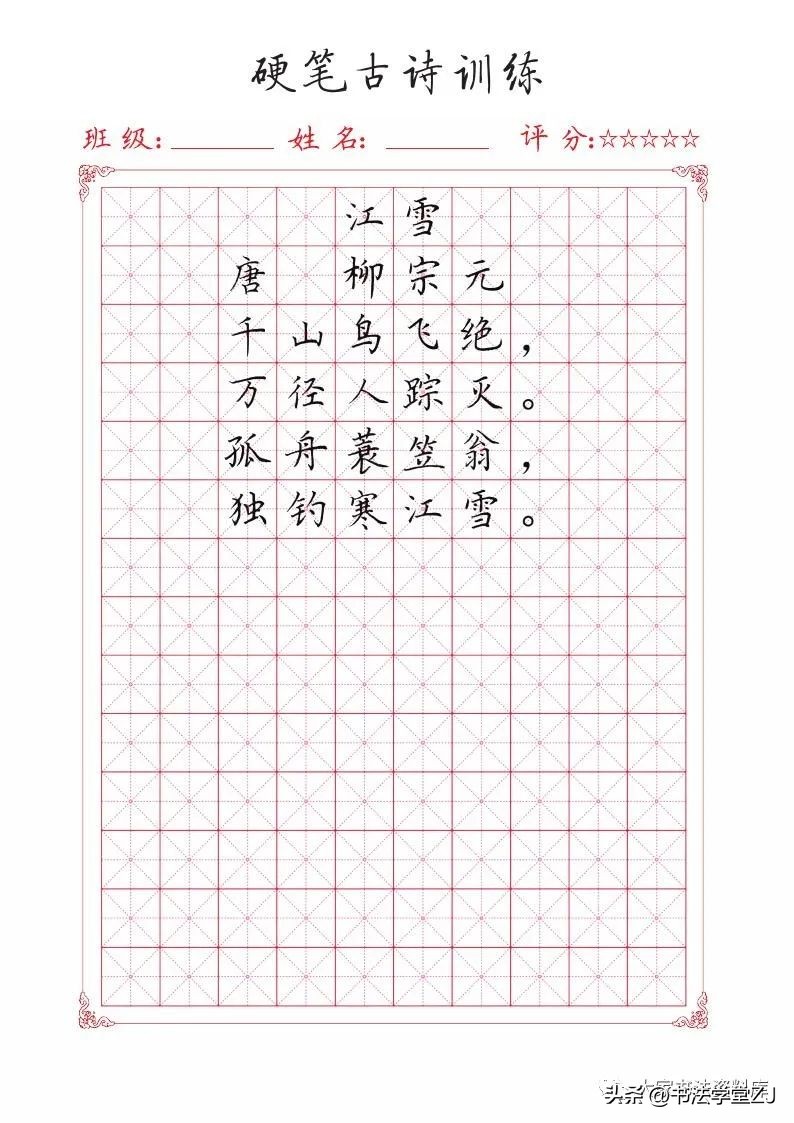 硬笔古诗训练
班级: 姓名: 评分:☆☆☆☆☆
江雪
唐 柳宗元
千山鸟飞绝，
万径人踪灭。
孤舟蓑笠翁，
独钓寒江雪。
大家书法资料库
头条@书法学堂ZJ